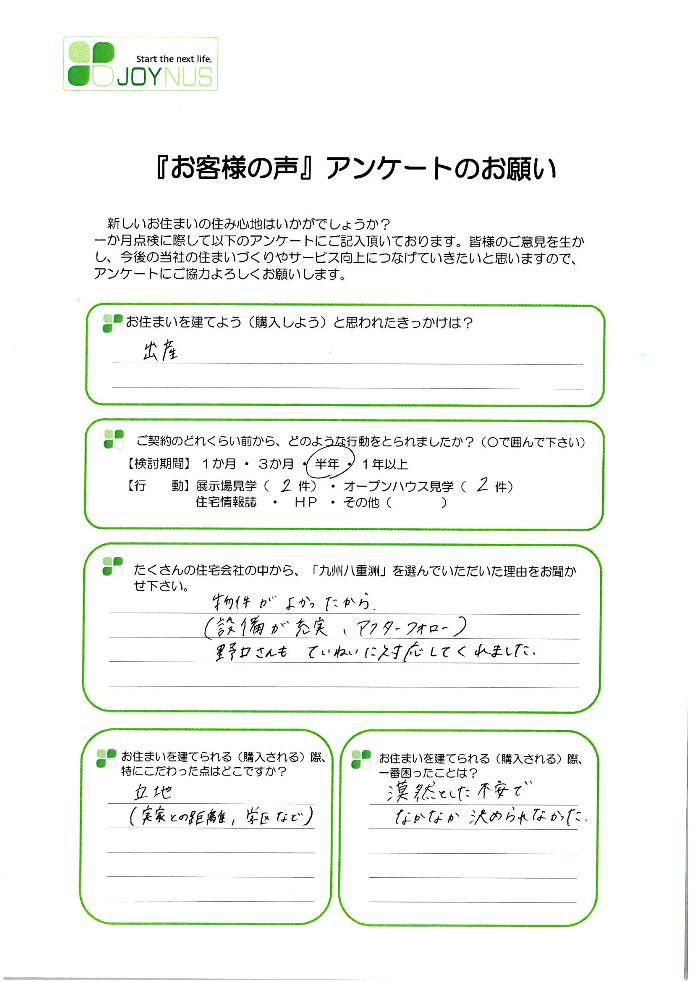 Start the next life.
JOYNUS
『お客様の声』アンケートのお願い
新しいお住まいの住み心地はいかがでしょうか？
一か月点検に際して以下のアンケートにご記入頂いております。皆様のご意見を生か
し、今後の当社の住まいづくりやサービス向上につなげていきたいと思いますので、
アンケートにご協力よろしくお願いします。
お住まいを建てよう（購入しよう）と思われたきっかけは？
出産
ご契約のどれくらい前から、どのような行動をとられましたか？（〇で囲んで下さい）
【検討期間】 １か月 ・ ３か月 ・ 半年 ・ １年以上
【行　　動】 展示場見学（ 2 件） ・ オープンハウス見学（ 2 件）
住宅情報誌 ・ ＨＰ ・ その他（　　　　）
たくさんの住宅会社の中から、「九州八重洲」を選んでいただいた理由をお聞か
せ下さい。
物件がよかったから.
(設備が充実、アフターフォロー)
野口さんも ていねいに対応してくれました.
お住まいを建てられる（購入される）際、
特にこだわった点はどこですか？
立地
(実家との距離, 学区など)
お住まいを建てられる（購入される）際、
一番困ったことは？
漠然とした不安で
なかなか 決められなかった.